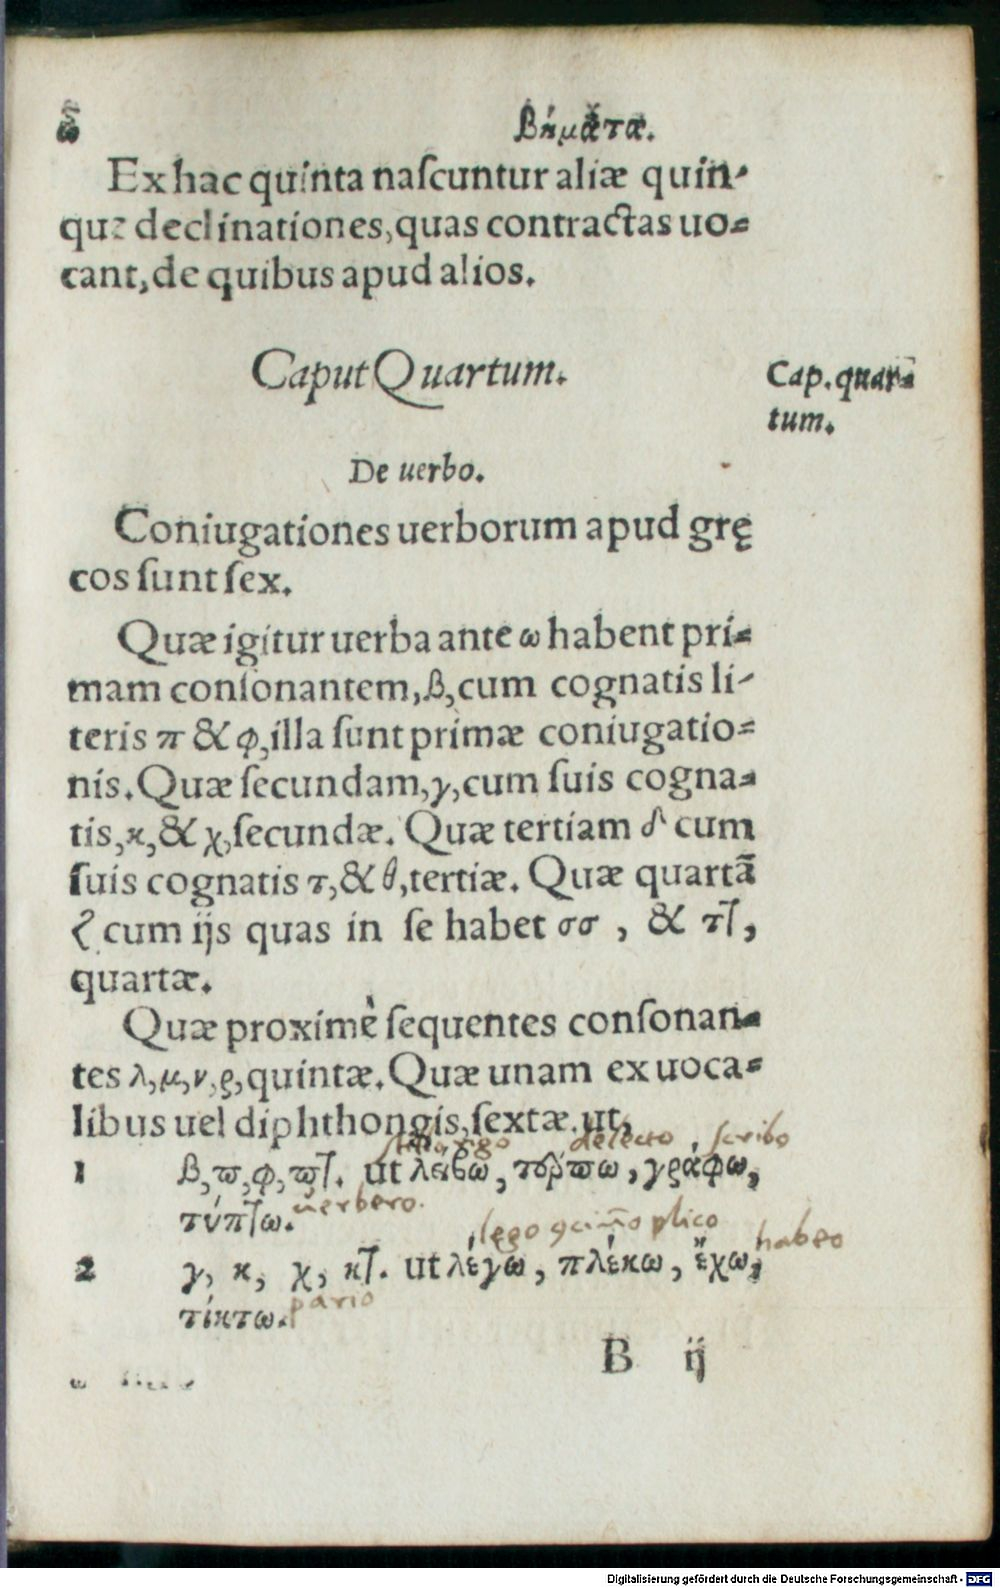 βήματα.
Ex hac quinta nascuntur aliæ quin-
que declinationes, quas contractas uo-
cant, de quibus apud alios.
Caput Quartum.
Cap. quar-
tum.
De uerbo.
Coniugationes uerborum apud grę
cos sunt sex.
Quæ igitur uerba ante ω habent pri-
mam consonantem, β, cum cognatis li-
teris π & φ, illa sunt primæ coniugatio-
nis. Quæ secundam, γ, cum suis cogna-
tis, κ, & χ, secundæ. Quæ tertiam δ cum
suis cognatis τ, & θ, tertiæ. Quæ quartā
ζ cum ijs quas in se habet σσ, & πτ,
quartæ.
Quæ proximè sequentes consonan-
tes λ, μ, ν, ρ, quintæ. Quæ unam ex uoca-
libus uel diphthongis, sextæ. ut,
delecto, scribo
1 β, ϖ, φ, ϖτ. ut λείβω, τέρϖω, γράφω,
uerbero.
τύπτω.
lego plico habeo
2 γ, κ, χ, κτ. ut λέγω, πλέκω, ἔχω,
pario
τίκτω.
B ij
Digitalisierung gefördert durch die Deutsche Forschungsgemeinschaft - DFG